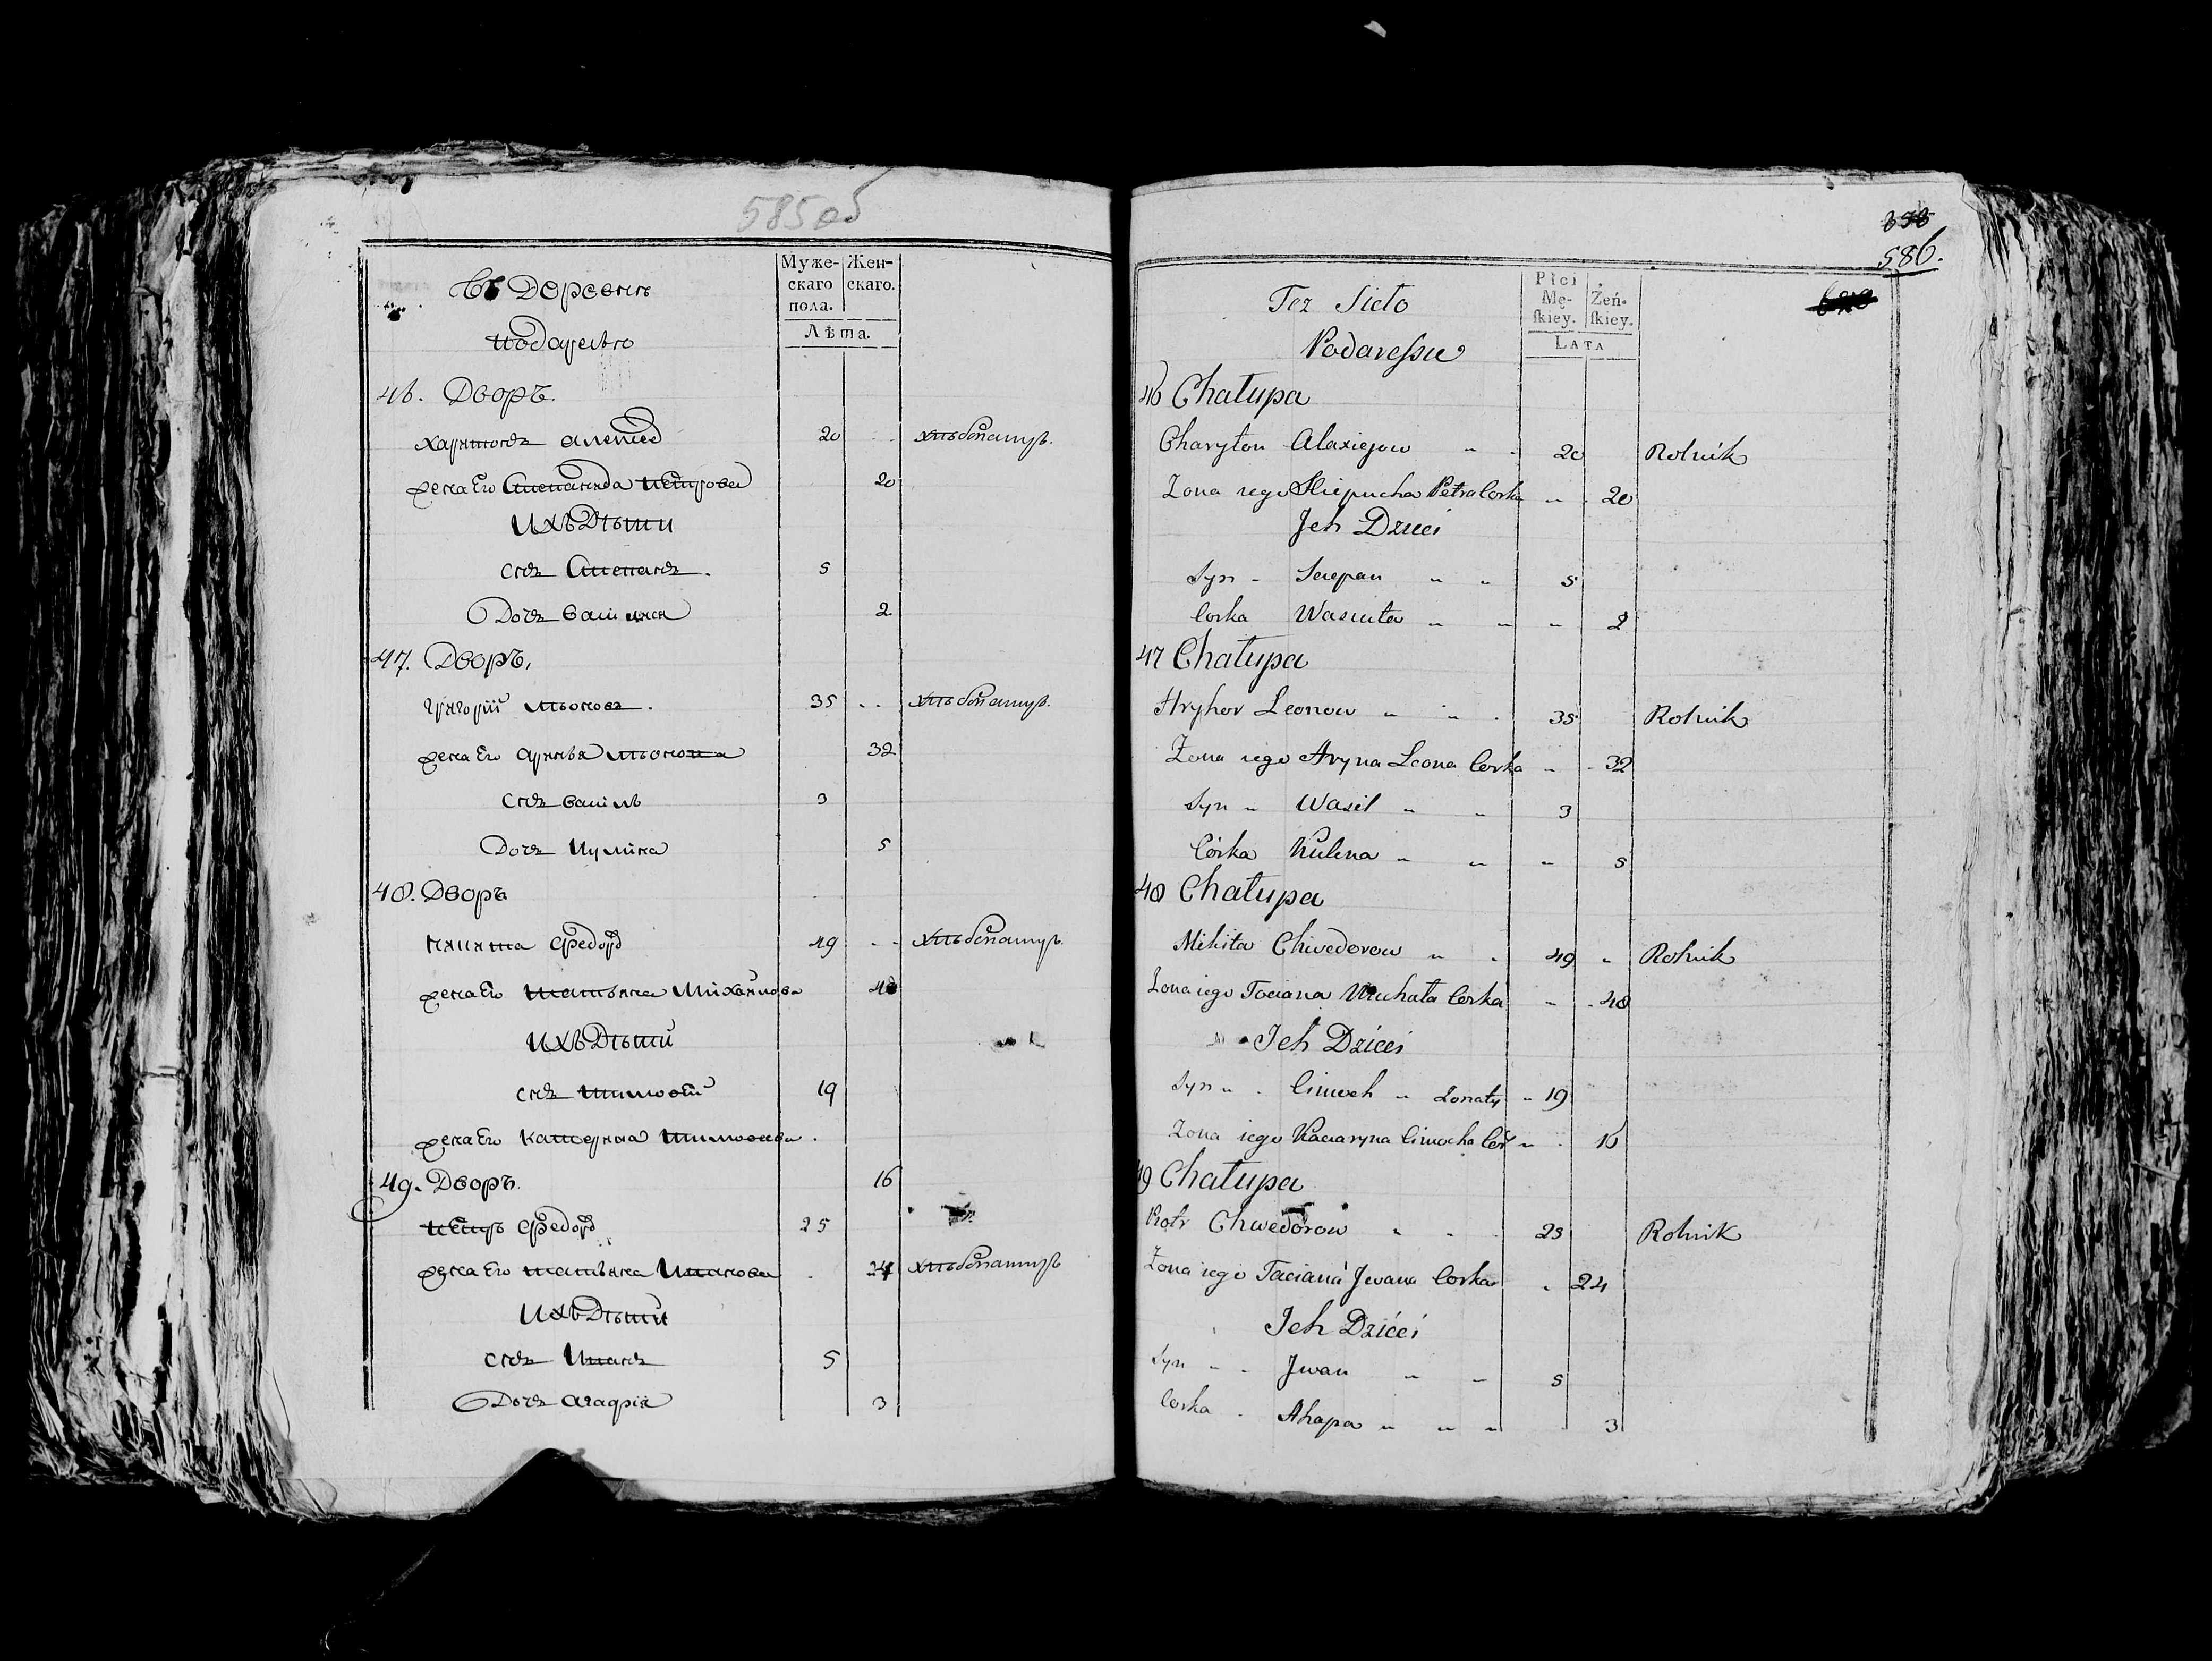 585об
Въ Деревни
Подаресью
Муже-
скаго
пола.
Жен-
скаго.
Лѣта.
46. Дворъ.
Харитонъ Алексеев 20 хлѣбопашецъ.
жена Его Степанида Петрова 20
Ихъ Дѣти
сынъ Степанъ. 5
Дочь Васил 2
47. Дворъ.
Григорий Лѣоновъ. 35 хлѣбопашецъ.
жена Его Арина Лѣонова 32
сынъ Васіль 3
Дочь Кулина 5
48. Дворъ
Никита Федоров 49 хлѣбопашецъ.
жена Его Татьяна Михайлова 48
Ихъ Дѣти
сынъ Тимофей 19
жена Его Катерина Тимофеева.
49. Дворъ. 16
Петръ Федоров 25
жена Его Татьяна Иванова 24 хлѣбопашецъ
Ихъ Дѣти
сынъ Иванъ 5
Дочь Агафія 3
586.
Tez Sieło
Podaressie
Płci
Mę-
skiey.
Żeń-
skiey.
LATA
46 Chałupa
Charyton Alaxiejow 20 Rolnik
Zona iego Sciepucha Petra Corka 20
Jch Dzieci
Syn Sciepan 5
Corka Wasiuta 2
47 Chałupa
Hryhor Leonow 35 Rolnik
Zona iego Aryna Leona Corka 32
Syn Wasil 3
Córka Kulina 5
48 Chałupa
Mikita Chwedorow 49 Rolnik
Zona iego Taciana Michała Corka 48
Jch Dzieci
Syn Cimoch Zonaty 19
Zona iego Kaciaryna Cimocha Cor 16
49 Chałupa
Piotr Chwedorow 25 Rolnik
Zona iego Taciana Jwana Corka 24
Jch Dzieci
Syn Jwan 5
Corka Ahapa 3